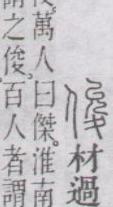 俊材過
萬人曰傑。淮南
之俊。百人者謂